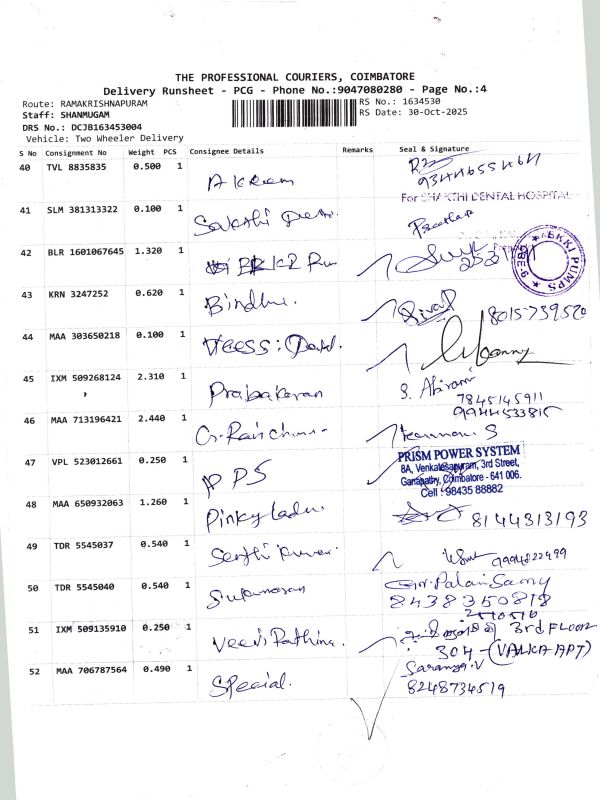 THE PROFESSIONAL COURIERS, COIMBATORE
Delivery Runsheet - PCG - Phone No.:9047080280 - Page No.:4
Route: RAMAKRISHNAPURAM
RS No.: 1634530
Staff: SHANMUGAM
RS Date: 30-Oct-2025
DRS No.: DCJB163453004
Vehicle: Two Wheeler Delivery
S No Consignment No Weight PCS Consignee Details Remarks Seal & Signature
40 TVL 8835835 0.500 1 Akram
9344655464
For SHAKTHI DENTAL HOSPITAL
41 SLM 381313322 0.100 1 Sakthi
42 BLR 1601067645 1.320 1
EKKI PUMPS
43 KRN 3247252 0.620 1 Bindhu. 8015739520
44 MAA 303650218 0.100 1
45 IXM 509268124 2.310 1 Prabakaran S. Abirami
7845145911
9944533815
46 MAA 713196421 2.440 1 Kannan S
47 VPL 523012661 0.250 1 PPS
PRISM POWER SYSTEM
8A, Venkatesapuram, 3rd Street,
Ganapathy, Coimbatore - 641 006.
Cell : 98435 88882
48 MAA 650932063 1.260 1 Pinky ladu. 8144313193
49 TDR 5545037 0.540 1 Senthil kumar. 9994822499
50 TDR 5545040 0.540 1 Palani Samy
8438350818
51 IXM 509135910 0.250 1 3rd FLOOR
304 - (VALKA APT)
52 MAA 706787564 0.490 1 Special. Saranya.V
8248734519